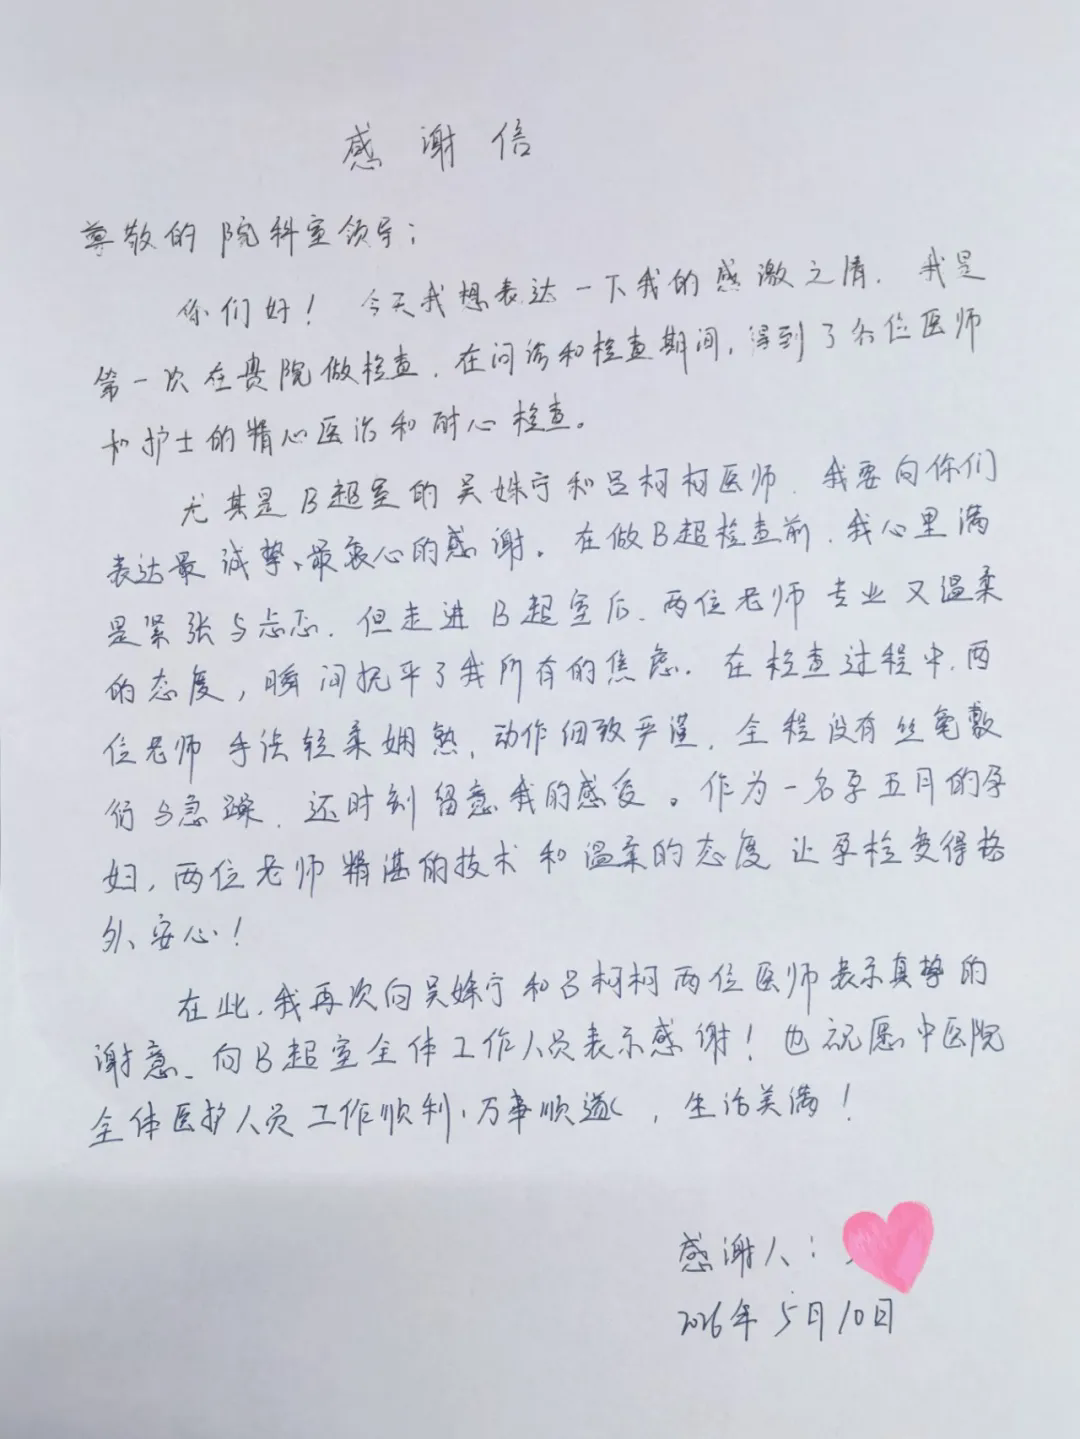 感谢信
尊敬的院科室领导：
你们好！今天我想表达一下我的感激之情，我是
第一次在贵院做检查，在问诊和检查期间，得到了各位医师
和护士的精心医治和耐心检查。
尤其是B超室的吴姝宁和吕柯柯医师，我要向你们
表达最诚挚、最衷心的感谢。在做B超检查前，我心里满
是紧张与忐忑，但走进B超室后，两位老师专业又温柔
的态度，瞬间抚平了我所有的焦虑。在检查过程中，两
位老师手法轻柔娴熟，动作细致严谨，全程没有丝毫敷
衍与急躁，还时刻留意我的感受。作为一名孕五月的孕
妇，两位老师精湛的技术和温柔的态度让孕检变得格
外安心！
在此，我再次向吴姝宁和吕柯柯两位医师表示真挚的
谢意、向B超室全体工作人员表示感谢！也祝愿中医院
全体医护人员工作顺利、万事顺遂，生活美满！
感谢人：
2026年5月10日